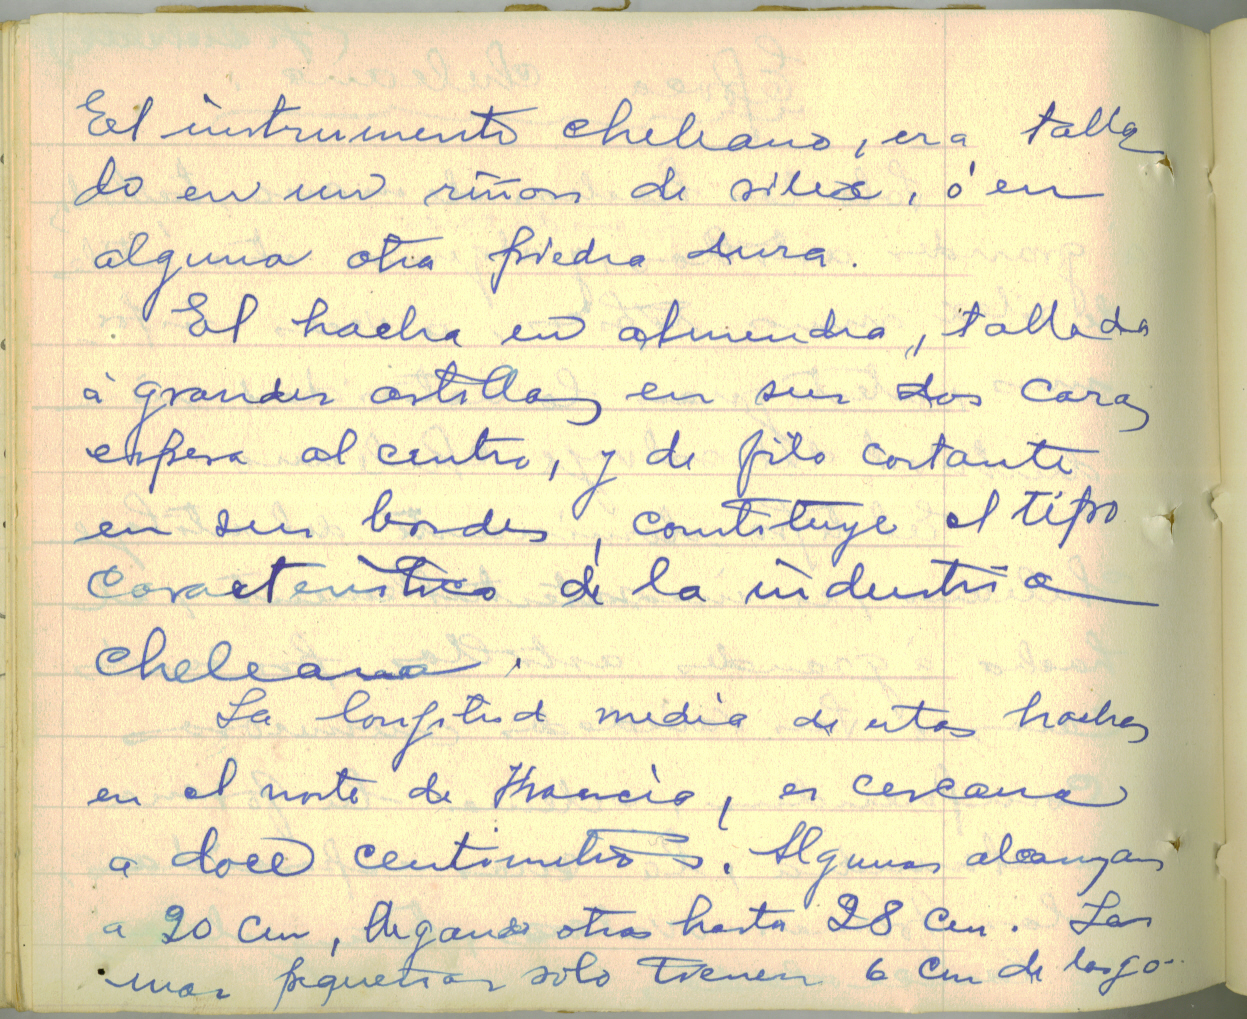 El instrumento cheleano, era talla
do en un riñon de silex, ó en
alguna otra piedra dura.
El hacha en almendra, tallada
á grandes astillas en sus dos caras
espesa al centro, y de filo cortante
en sus bordes, constituye el tipo
caracteristico de la industria
cheleana.
La longitud media de estas hachas
en el norte de Francia, es cercana
a doce centimetros. Algunas alcanzan
a 20 cm, llegando otras hasta 28 cm. Las
mas pequeñas sólo tienen 6 cm de largo.